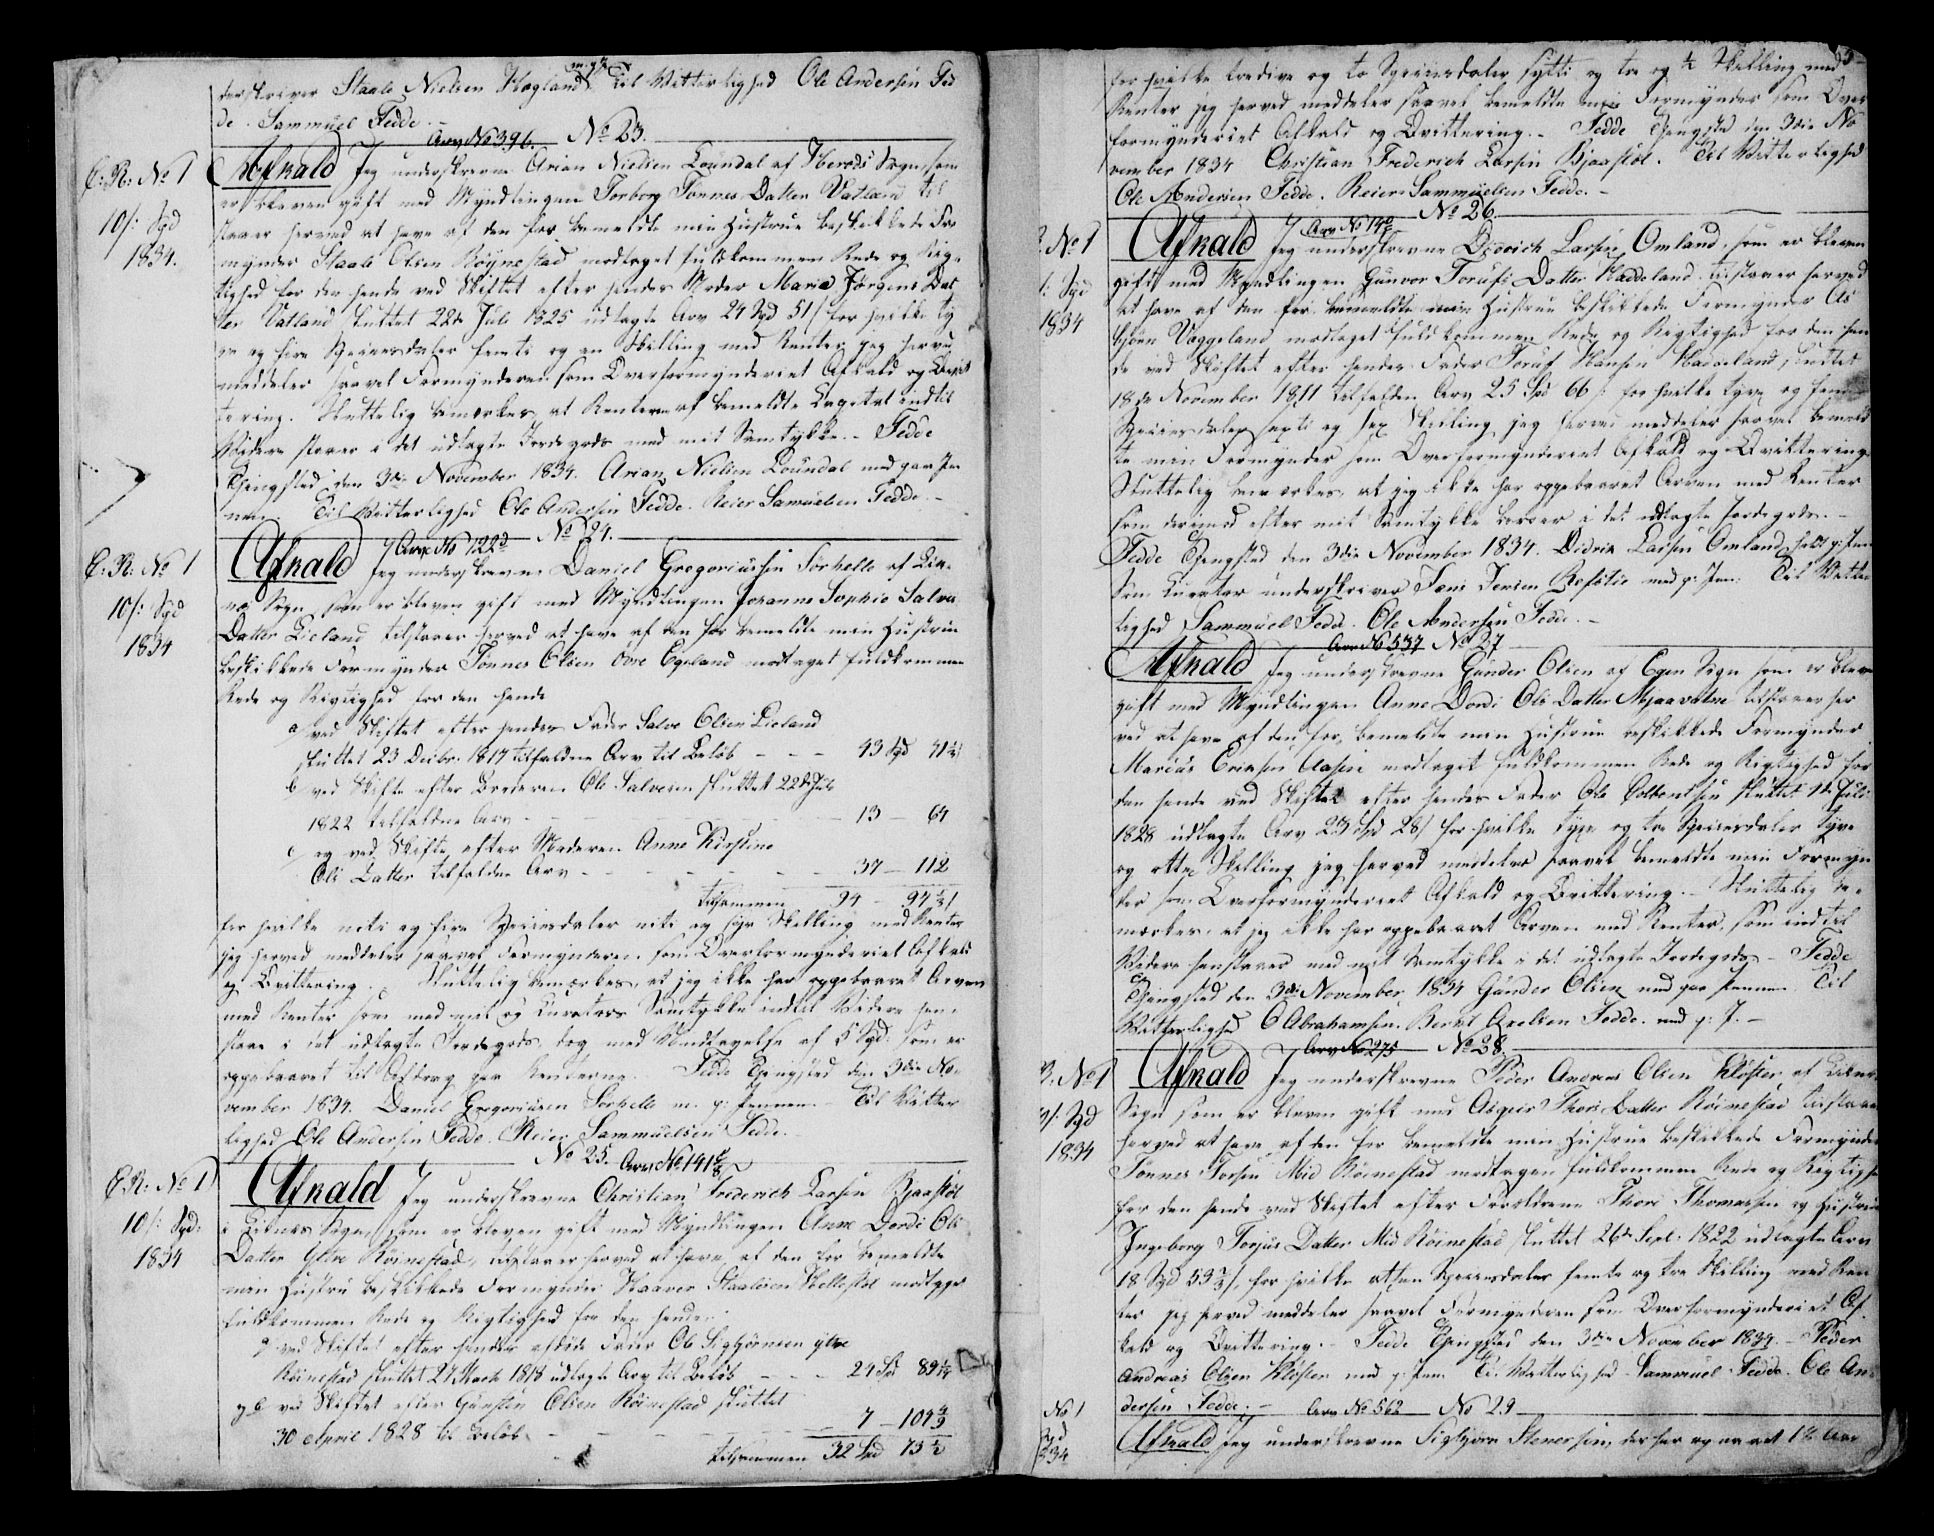 derskriver Staale Nielsen Høgland m. g. P. Til Vitterlighed Ole Andersen Fed
de. Sammuel Fedde.
Arv No 396. No 23.
C: R: No 1
10/: Sgd
1834.
Afkald Jeg underskrevne Arian Nielsen Loundal af Sogn, som
er bleven gift med Myndlingen Torborg Tønnes Datter Vatland til
staaer herved at have af den for bemeldte min Hustrue beskikkede For
mynder Staale Olsen Røynestad modtaget fuldkommen Rede og Rig-
tighed for den hende ved Skiftet efter hendes Moder Maria Jørgens Dat
ter Vatland sluttet 22de Juli 1825 udlagte Arv 24 Spd 51/ for hvilke ty
ve og fire Speciesdaler femti og en Skilling med Renter jeg herved
meddeler saavel Formynderen som Overformynderiet Afkald og Qvit
tering. Sluttelig bemærkes, at Renterne af bemeldte Capital indtil
Videre staaer i det udlagte Jordegods med mit Samtykke. Fedde
Thingsted den 3die November 1834. Arian Nielsen Loundal med paaholden Pen
nen. Til Vitterlighed Ole Andersen Fedde. Reier Samuelsen Fedde.
Arv No 122 No 24.
C: R: No 1
10/: Sgd
1834
Afkald Jeg underskrevne Daniel Gregoriussen Sørhelle af
Sogn som er bleven gift med Myndlingen Johanne Sophie Salve
Datter Lieland tilstaaer herved at have af den for bemeldte min Hustrue
beskikkede Formynder Tønnes Olsen Øvre Egeland modtaget fuldkommen
Rede og Rigtighed for den hende
a ved Skiftet efter hendes Fader Salve Olsen Lieland
sluttet 23 Decbr. 1817 tilfaldne Arv til Beløb - - - 43 Spd 41½
b ved Skifte efter Broderen Ole Salvesen sluttet 22de Juli
1822 tilfaldne Arv - - - 13 - 64
c og ved Skifte efter Moderen Anne Kirstine
Ols Datter tilfaldne Arv - - - 37 - 112
tilsammen 94 - 97½
for hvilke niti og fire Speciesdaler niti og syv Skilling med Renter
jeg herved meddeler saavel Formynderen som Overformynderiet Afkald
og Qvittering. Sluttelig bemærkes, at jeg ikke har oppebaaret Arven
med Renter som med mit og Kurators Samtykke indtil Videre hen-
staae i det udlagte Jordegods, dog med Undtagelse af 5 Spd: som er
oppebaaret til Afdrag paa Renterne. Fedde Thingsted den 3die No-
vember 1834. Daniel Gregoriusen Sørhelle m. p: Pennen. Til Vitter
lighed Ole Andersen Fedde. Reier Sammuelsen Fedde.
No 25. Arv No 141
C: R: No 1
10/: Sgd:
1834
Afkald Jeg underskrevne Christian Frederich Larsen Bjaastøl
i Liknes Sogn som er bleven gift med Myndlingen Anne Dordi Ols
Datter Ytre Røinestad, tilstaaer herved at have af den for bemeldte
min Hustru beskikkede Formynder Haaver Staalesen Skellestøl modtaget
fuldkommen Rede og Rigtighed for den hende:
a ved Skiftet efter hendes afdøde Fader Ole Sigbjørnsen ytre
Røinestad sluttet 27 Mach 1818 udlagte Arv til Beløb - - - 24 Spd 89
og b ved Skiftet efter Gunsten Olsen Røinestad sluttet
30 April 1828 til Beløb - - - 7 - 104
tilsammen 32 Spd 73½
for hvilke tredive og to Speciesdaler sytti og tre og ½ Skilling med
Renter jeg herved meddeler saavel bemeldte min Formynder som Over
formynderiet Afkald og Qvittering. - Fedde Thingsted den 3die No
vember 1834 Christian Frederich Larsen Bjaastøl. Til Vitterlighed
Ole Andersen Fedde. Reier Sammuelsen Fedde.
Arv No 140 No 26.
No 1
/: Sgd
1834
Afkald Jeg underskrevne Diderich Larsen Omland, som er bleven
gift med Myndlingen Gunvor Torufs Datter Haddeland tilstaaer herved
at have af den for bemeldte min Hustrue beskikkede Formynder As
bjørn Vaggeland modtaget fuldkommen Rede og Rigtighed for den hen
de ved Skiftet efter hendes Fader Toruf Hansen Haddeland, sluttet
18de November 1811 tilfaldne Arv 25 Spd 66 /: for hvilke tyve og fem
Speciesdaler sexti og sex Skilling jeg herved meddeler saavel bemeld
te min Formynder som Overformynderiet Afkald og Qvittering.
Sluttelig bemærkes, at jeg ikke har oppebaaret Arven med Renter
som derimod efter mit Samtykke beroer i det udlagte Jordegods. -
Fedde Thingsted den 3die November 1834. Didrik Larsen Omland holdt p: Pen
Som Curator underskriver Tønes Jensen Røfstie med p: Pen: Til Vitter
lighed Sammuel Fedde. Ole Andersen Fedde. -
Arv No 537 No 27
Afkald Jeg underskrevne Gunder Olsen af Egen Sogn som er bleven
gift med Myndlingen Anne Dordi Ols Datter Mjaavatne tilstaaer her
ved at have af den for bemeldte min Hustrue beskikkede Formynder
Marius Eriksen Clasen modtaget fuldkommen Rede og Rigtighed for
den hende ved Skiftet efter hendes Fader Ole Colbentsen sluttet 1de Juli
1828 udlagte Arv 23 Spd 28/ for hvilke tyve og tre Speciesdaler tyve
og otte Skilling jeg herved meddeler saavel bemeldte min Formyn
der som Overformynderiet Afkald og Qvittering. - Sluttelig be-
mærkes, at jeg ikke har oppebaaret Arven med Renter, som indtil
Videre henstaaer med mit Samtykke i det udlagte Jordegods. - Fedde
Thingsted den 3die November 1834 Gunder Olsen med paa Pennen Til
Vitterlighed O Abrahamsen. Bernt Axelsen Fedde. med p: P. -
Arv No 275 No 28
R. No 1
/: Sgd
1834
Afkald Jeg underskrevne Peder Andreas Olsen Kloster af Liknes
Sogn som er bleven gift med Asgier Thors Datter Røinestad tilstaaer
herved at have af den for bemeldte min Hustrue beskikkede Formynder
Tønnes Torsen Mid Røinestad modtagen fuldkommen Rede og Rigtighed
for den hende ved Skiftet efter Forældrene Thore Thomassen og Hustrue
Ingeborg Torjus Datter Mid Røinestad sluttet 26de Sept. 1822 udlagte Arv
18 Spd 53 /, for hvilke atten Speciesdaler femti og tre Skilling med Ren
ter jeg herved meddeler saavel Formynderen som Overformynderiet Af
kald og Qvittering. - Fedde Thingsted den 3die November 1834. - Peder
Andreas Olsen Kloster med p: Pen: Til Vitterlighed Sammuel Fedde. Ole An
dersen Fedde. -
Arv No 562 No 29
No 1
Sgd
834
Afkald Jeg underskrevne Sigbjørn Stenersen, der har opnaaet 18 Aar